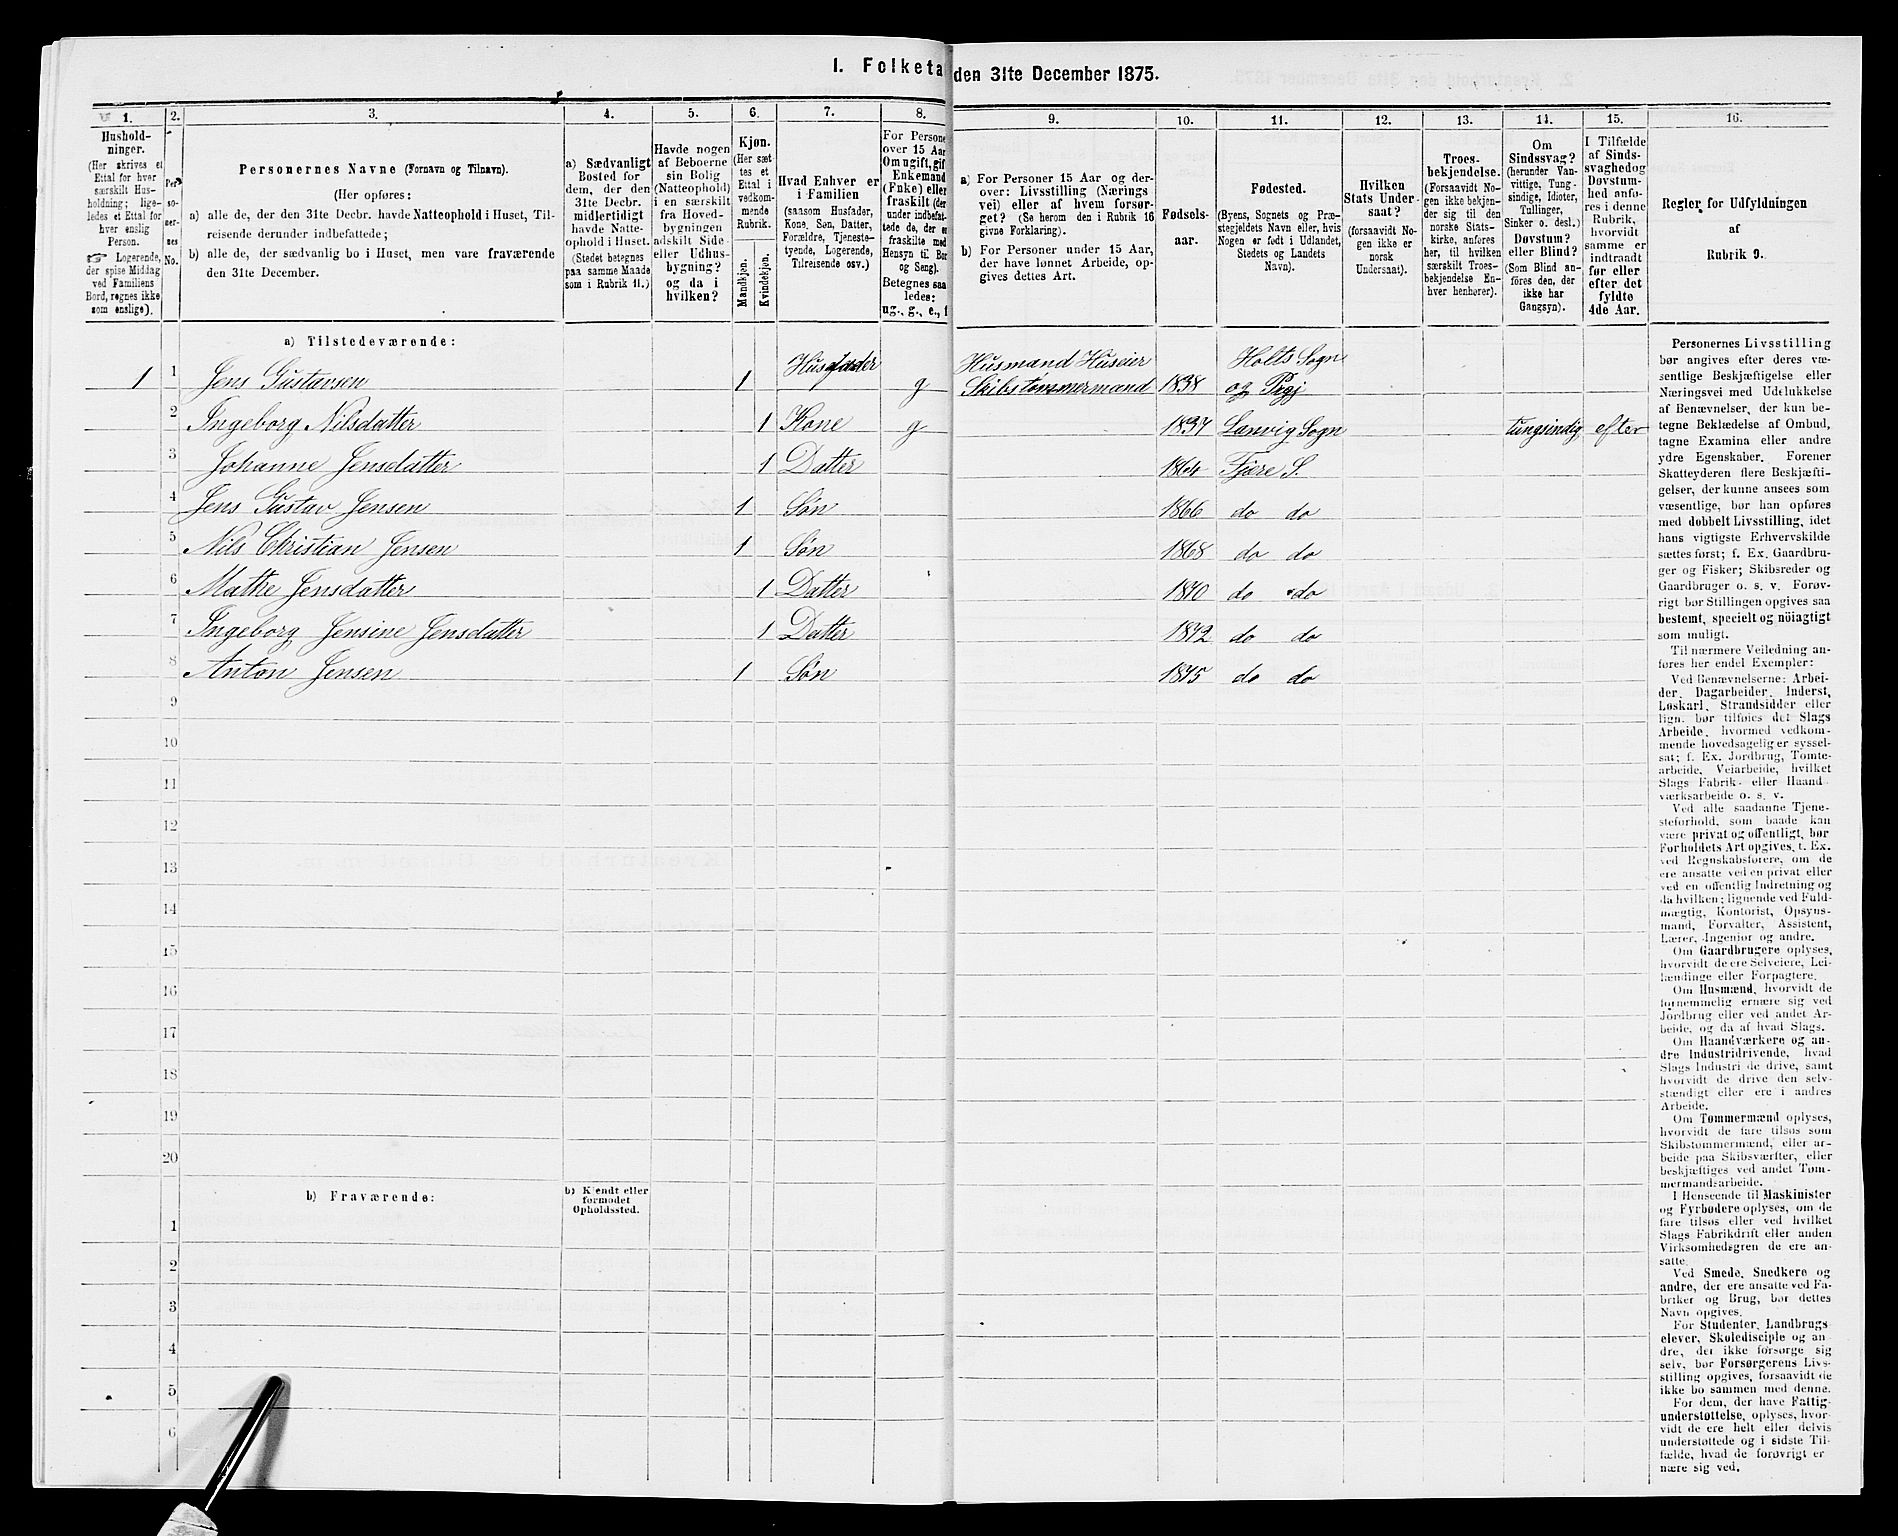 I. Folketa
den 31te December 1875.
1.
Hushold-
ninger.
(Her skrives et
Ettal for hver
særskilt Hus-
holdning; lige-
ledes et Ettal for
hver enslig
Person.
☞ Logerende,
der spise Middag
ved Familiens
Bord, regnes ikke
som enslige).
2.
Per
so-
ner-
nes
No.
3.
Personernes Navne (Fornavn og Tilnavn).
(Her opføres:
a) alle de, der den 31te Decbr. havde Natteophold i Huset, Til-
reisende derunder indbefattede;
b) alle de, der sædvanlig bo i Huset, men vare fraværende
den 31te December.
4.
a) Sædvanligt
Bosted for
dem, der den
31te Decbr.
midlertidigt
havde Natte-
ophold i Huset.
(Stedet betegnes
paa samme Maade
som i Rubrik 11.)
5.
Havde nogen
af Beboerne
sin Bolig
(Natteophold)
i en særskilt
fra Hoved-
bygningen
adskilt Side-
eller Udhus-
bygning?
og da i
hvilken?
6.
Kjøn.
(Her sæt-
tes et
Ettal i
vedkom-
mende
Rubrik.
Mandkjøn.
Kvindekjøn.
7.
Hvad Enhver er
i Familien
(saasom Husfader,
Kone, Søn, Datter,
Forældre, Tjeneste-
tyende, Logerende,
Tilreisende osv.)
8.
For Persone
over 15 Aar
Om ugift, gif
Enkemand
(Enke) elle
fraskilt (der
under indbefat-
tede de, der e
fraskilte med
Hensyn til Bor
og Seng).
Betegnes saa
ledes:
ug., g., e., f
9.
a) For Personer 15 Aar og der-
over: Livsstilling (Nærings
vei) eller af hvem forsør-
get? (Se herom den i Rubrik 16
givne Forklaring).
b) For Personer under 15 Aar,
der have lønnet Arbeide, op-
gives dettes Art.
10.
Fødsels-
aar.
11.
Fødested.
(Byens, Sognets og Præ-
stegjeldets Navn eller, hvis
Nogen er født i Udlandet,
Stedets og Landets
Navn).
12.
Hvilken
Stats Under-
saat?
(forsaavidt No-
gen ikke er
norsk
Undersaat).
13.
Troes-
bekjendelse.
(Forsaavidt No-
gen ikke bekjen-
der sig til den
norske Stats-
kirke, anføres
her, til hvilken
særskilt Troes-
bekjendelse En-
hver henhører).
14.
Om
Sindssvag?
(herunder Van-
vittige, Tung-
sindige, Idioter,
Tullinger,
Sinker o. desl.)
Døvstum?
eller Blind?
(Som Blind an-
føres den, der
ikke har
Gangsyn).
15.
I Tilfælde
af Sinds-
svaghed og
Døvstum-
hed anfø-
res i denne
Rubrik,
hvorvidt
samme er
indtraadt
før eller
efter det
fyldte
4de Aar.
16.
Regler for Udfyldningen
af
Rubrik 9.
a) Tilstedeværende:
1 1 Jens Gustavsen 1 Husfader g Husmand Huseier Skibstømmermand 1838 Holts Sogn og Prgj
2 Ingeborg Nilsdatter 1 Kone g 1837 Lanvig Sogn tungsindig efter
3 Johanne Jensdatter 1 Datter 1864 Fjære S.
4 Jens Gustav Jensen 1 Søn 1866 do do
5 Nils Christian Jensen 1 Søn 1868 do do
6 Mathe Jensdatter 1 Datter 1870 do do
7 Ingeborg Jensine Jensdatter 1 Datter 1872 do do
8 Anton Jensen 1 Søn 1875 do do
9
10
11
12
13
14
15
16
17
18
19
20
b) Fraværende:
b) Kjendt eller
formodet
Opholdssted.
1
2
3
4
5
6
Personernes Livsstilling
bør angives efter deres væ-
sentlige Beskjæftigelse eller
Næringsvei med Udelukkelse
af Benævnelser, der kun be-
tegne Beklædelse af Ombud,
tagne Examina eller andre
ydre Egenskaber. Forener
Skatteyderen flere Beskjæfti-
gelser, der kunne ansees som
væsentlige, bør han opføres
med dobbelt Livsstilling, idet
hans vigtigste Erhvervskilde
sættes først; f. Ex. Gaardbru-
ger og Fisker; Skibsreder og
Gaardbruger o. s. v. Forøv-
rigt bør Stillingen opgives saa
bestemt, specielt og nöiagtigt
som muligt.
Til nærmere Veiledning an-
føres her endel Exempler:
Ved Benævnelserne: Arbei-
der, Dagarbeider, Inderst,
Løskarl, Strandsidder eller
lign. bør tilføies det Slags
Arbeide, hvormed vedkom-
mende hovedsagelig er syssel-
sat; f. Ex. Jordbrug, Tomte-
arbeide, Veiarbeide, hvilket
Slags Fabrik- eller Haand-
værksarbeide o. s. v.
Ved alle saadanne Tjene-
steforhold, som baade kan
være privat og offentligt, bør
Forholdets Art opgives, f. Ex.
ved Regnskabsførere, om de
ere ansatte ved en privat eller
ved en offentlig Indretning og
da hvilken; lignende ved Fuld-
mægtig, Kontorist, Opsyns-
mand, Forvalter, Assistent,
Lærer, Ingeniør og andre.
Om Gaardbrugere oplyses,
hvorvidt de ere Selveiere, Lei-
lændinge eller Forpagtere.
Om Husmænd, hvorvidt de
fornemmelig ernære sig ved
Jordbrug eller ved andet Ar-
beide, og da af hvad Slags.
Om Haandværkere og an-
dre Industridrivende, hvad
Slags Industri de drive, samt
hvorvidt de drive den selv-
stændigt eller ere i andres
Arbeide.
Om Tømmermænd oplyses,
hvorvidt de fare tilsøs som
Skibstømmermænd, eller ar-
beide paa Skibsværfter, eller
beskjæftiges ved andet Tøm-
mermandsarbeide.
I Henseende til Maskinister
og Fyrbødere oplyses, om de
fare tilsøs eller ved hvilket
Slags Fabrikdrift eller anden
Virksomhedsgren de ere an-
satte.
Ved Smede, Snedkere og
andre, der ere ansatte ved Fa-
briker og Brug, bør dettes
Navn opgives.
For Studenter, Landbrugs
elever, Skoledisciple og an
dre, der ikke forsørge sig
selv, bør Forsørgerens Livs-
stilling opgives, forsaavidt de
ikke bo sammen med denne.
For dem, der have Fattig-
understøttelse, oplyses, hvor-
vidt de ere helt eller delvis
understøttede og i sidste Til-
fælde, hvad de forøvrigt er
nære sig ved.